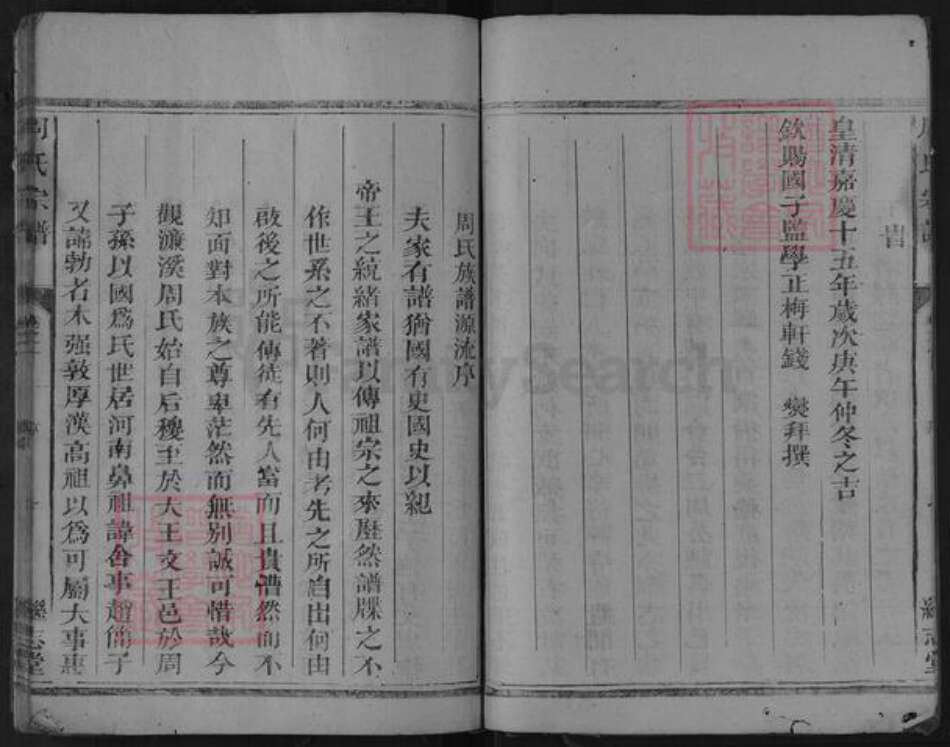 皇清嘉慶十五年歲次庚午仲冬之吉
欽賜國子監學正梅軒錢 爕拜撰
周氏族譜源流序
夫家有譜猶國有史國史以親
帝王之統緒家譜以傳祖宗之來歷然譜牒之不
作世系之不著則人何由考先之所自出何由
啟後之所能傳徒有先人富而且貴懵然而不
知面對本族之尊卑茫然而無別誠可惜哉今
觀濂溪周氏始自后稷至於大王文王邑於周
子孫以國爲氏世居河南鼻祖諱舍事趙簡子
又諱勃者木强敦厚漢高祖以爲可屬大事惠
周氏宗譜
繼志堂